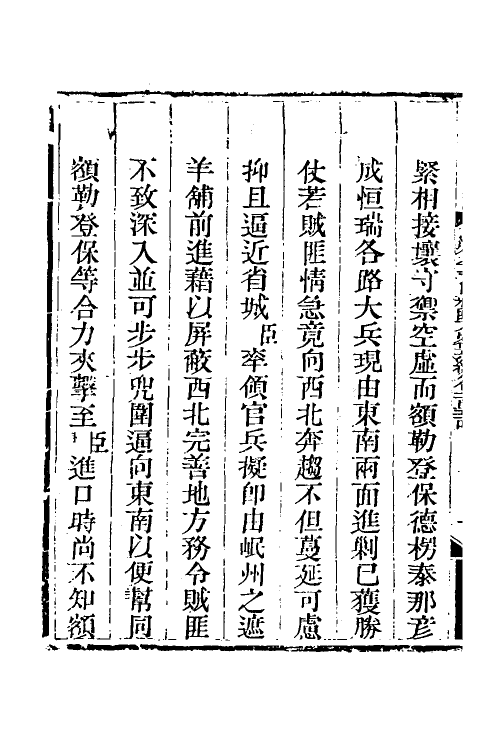 緊相接壤守禦空虛而額勒登保德楞泰那彦
成恒瑞各路大兵現由東南兩面進剿已獲勝
仗若賊匪情急竟向西北奔趨不但蔓延可慮
抑且逼近省城臣率領官兵擬卽由岷州之遮
羊舖前進藉以屏蔽西北完善地方務令賊匪
不致深入並可步步兜圍逼向東南以便幫同
額勒登保等合力夾擊至臣進口時尚不知額